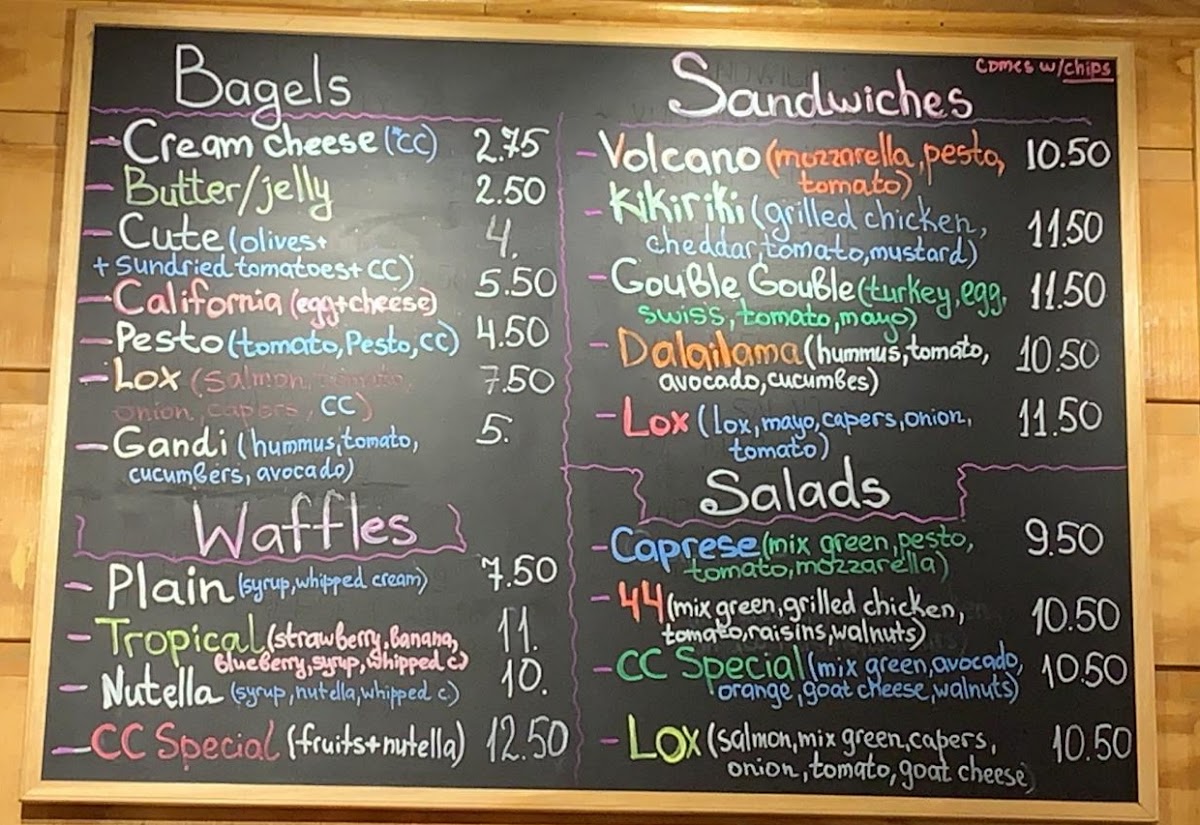 Bagels
- Cream cheese (*CC) 2.75
- Butter/jelly 2.50
- Cute (olives+ 4.
+ sundried tomatoest CC)
- California (egg+cheese) 5.50
- Pesto (tomato, Pesto, CC) 4.50
- Lox (Salmon, tomato, 7.50
onion, capers, CC)
- Gandi (hummus, tomato, 5.
cucumbers, avocado)
Waffles
- Plain (syrup, whipped cream) 7.50
- Tropical (strawberry, Banana, 11.
Blueberry, syrup, whipped c)
- Nutella (syrup, nutella, whipped c.) 10.
- CC Special (fruits+nutella) 12.50
comes w/chips
Sandwiches
- Volcano (mozzarella, pesto, 10.50
tomato)
- Kikiriki (grilled chicken, 11.50
cheddar, tomato, mustard)
- Gouble Gouble (turkey, egg, 11.50
swiss, tomato, mayo)
- Dalailama (hummus, tomato, 10.50
avocado, cucumbes)
- Lox (lox, mayo, capers, onion, 11.50
tomato)
Salads
- Caprese (mix green, pesto, 9.50
tomato, mozzarella)
- 44 (mix green, grilled chicken, 10.50
tomato, raisins, walnuts)
- CC Special (mix green, avocado, 10.50
orange, goat cheese, walnuts)
- Lox (salmon, mix green, capers, 10.50
onion, tomato, goat cheese)